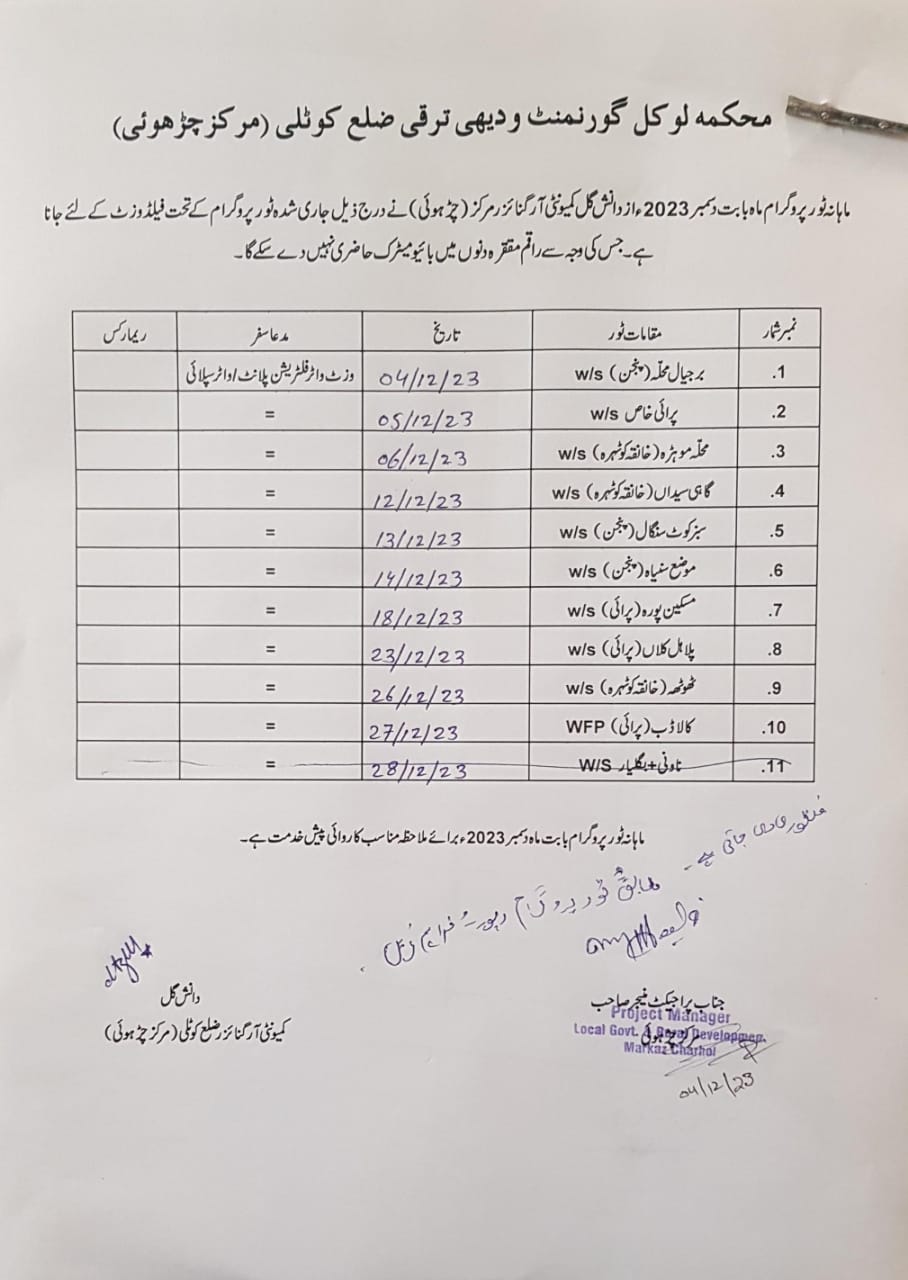 محکمہ لوکل گورنمنٹ و دیہی ترقی ضلع کوٹلی (مرکز چڑھوئی)
ماہانہ ٹور پروگرام ماہ بابت دسمبر 2023ء از دانش گل کمیونٹی آرگنائزر مرکز (چڑہوئی) نے درج ذیل جاری شدہ ٹور پروگرام کے تحت فیلڈ وزٹ کے لئے جانا
ہے۔ جس کی وجہ سے راقم مقررہ دنوں میں بائیو میٹرک حاضری نہیں دے سکے گا۔
نمبر شمار مقامات ٹور تاریخ مدعا سفر ریمارکس
1. برجیال محلہ (پنجن) w/s 04/12/23 وزٹ واٹر فلٹریشن پلانٹ / واٹر سپلائی
2. پرائی خاص w/s 05/12/23 =
3. محلہ موہڑہ (خانقہ کوٹہرہ) w/s 06/12/23 =
4. گاہی سیداں (خانقہ کوٹہرہ) w/s 12/12/23 =
5. سبز کوٹ سنگال (پنجن) w/s 13/12/23 =
6. موضع سنیاہ (پنجن) w/s 14/12/23 =
7. مسکین پورہ (پرائی) w/s 18/12/23 =
8. پلاہل کلاں (پرائی) w/s 23/12/23 =
9. ٹھوٹھہ (خانقہ کوٹہرہ) w/s 26/12/23 =
10. کالا ڈب (پرائی) WFP 27/12/23 =
11. ناونی + بگلیار W/S 28/12/23 =
ماہانہ ٹور پروگرام بابت ماہ دسمبر 2023ء برائے ملاحظہ مناسب کاروائی پیش خدمت ہے۔
منظوری دی جاتی ہے۔
مطابق ٹور پروگرام رپورٹ فراہم کریں۔
دانش گل
کمیونٹی آرگنائزر ضلع کوٹلی (مرکز چڑہوئی)
جناب پراجیکٹ منیجر صاحب
Project Manager
مرکز چڑہوئی
Local Govt. & Rural Developmen
Markaz Charhoi
04/12/23